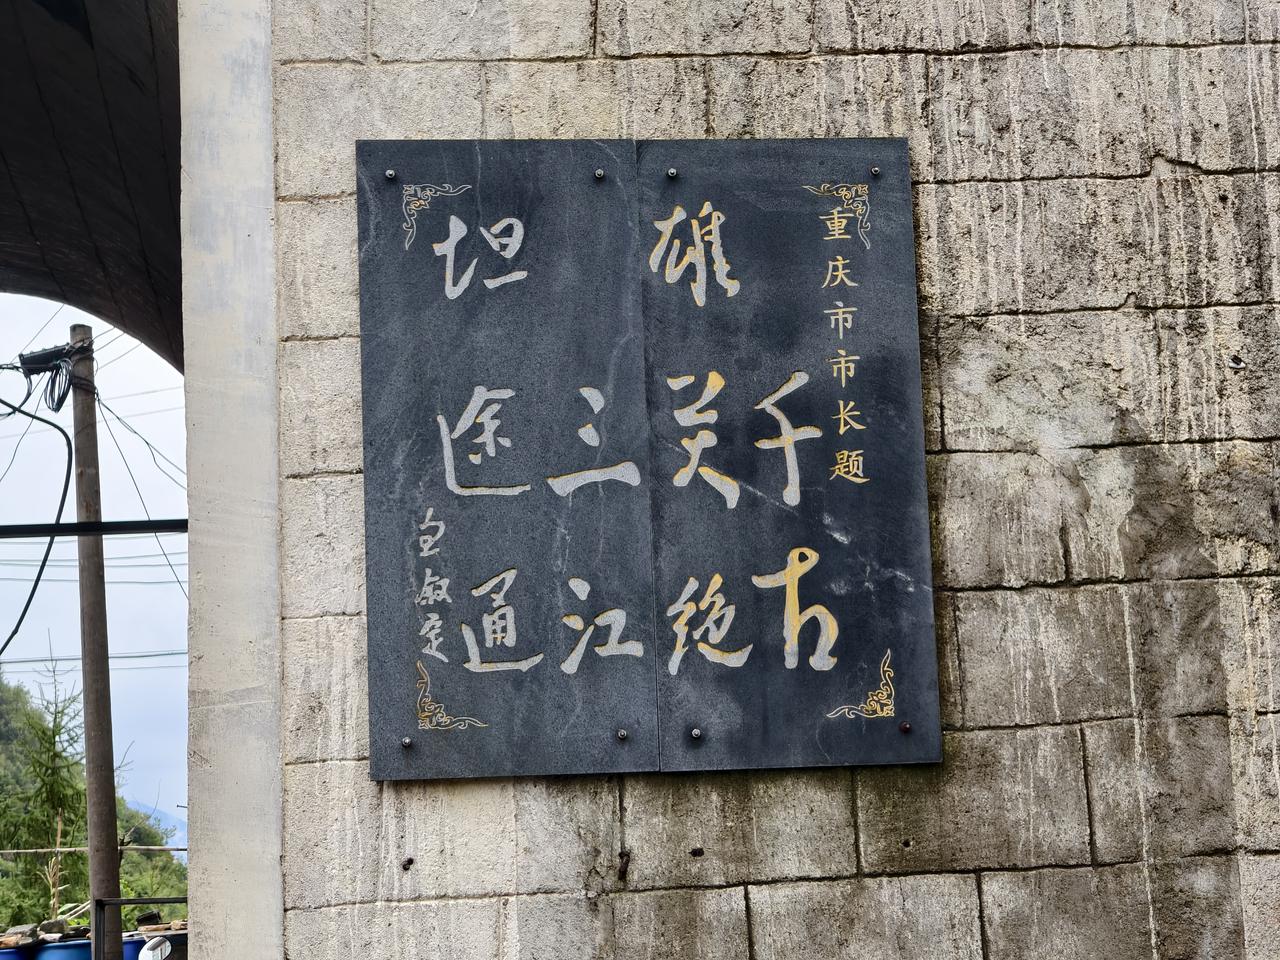 重庆市市长题
千古
雄关绝
三江
坦途通
包叙定